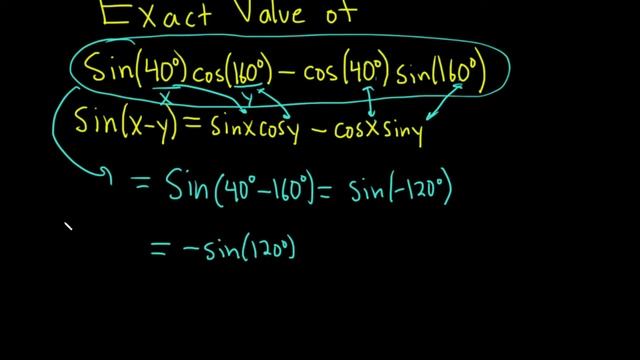 Exact Value of
Sin(40°)cos(160°) - cos(40°) sin(160°)
x y
Sin(x-y) = sinxcosy - cosxsiny
= Sin(40°-160°) = sin(-120°)
= -sin(120°)